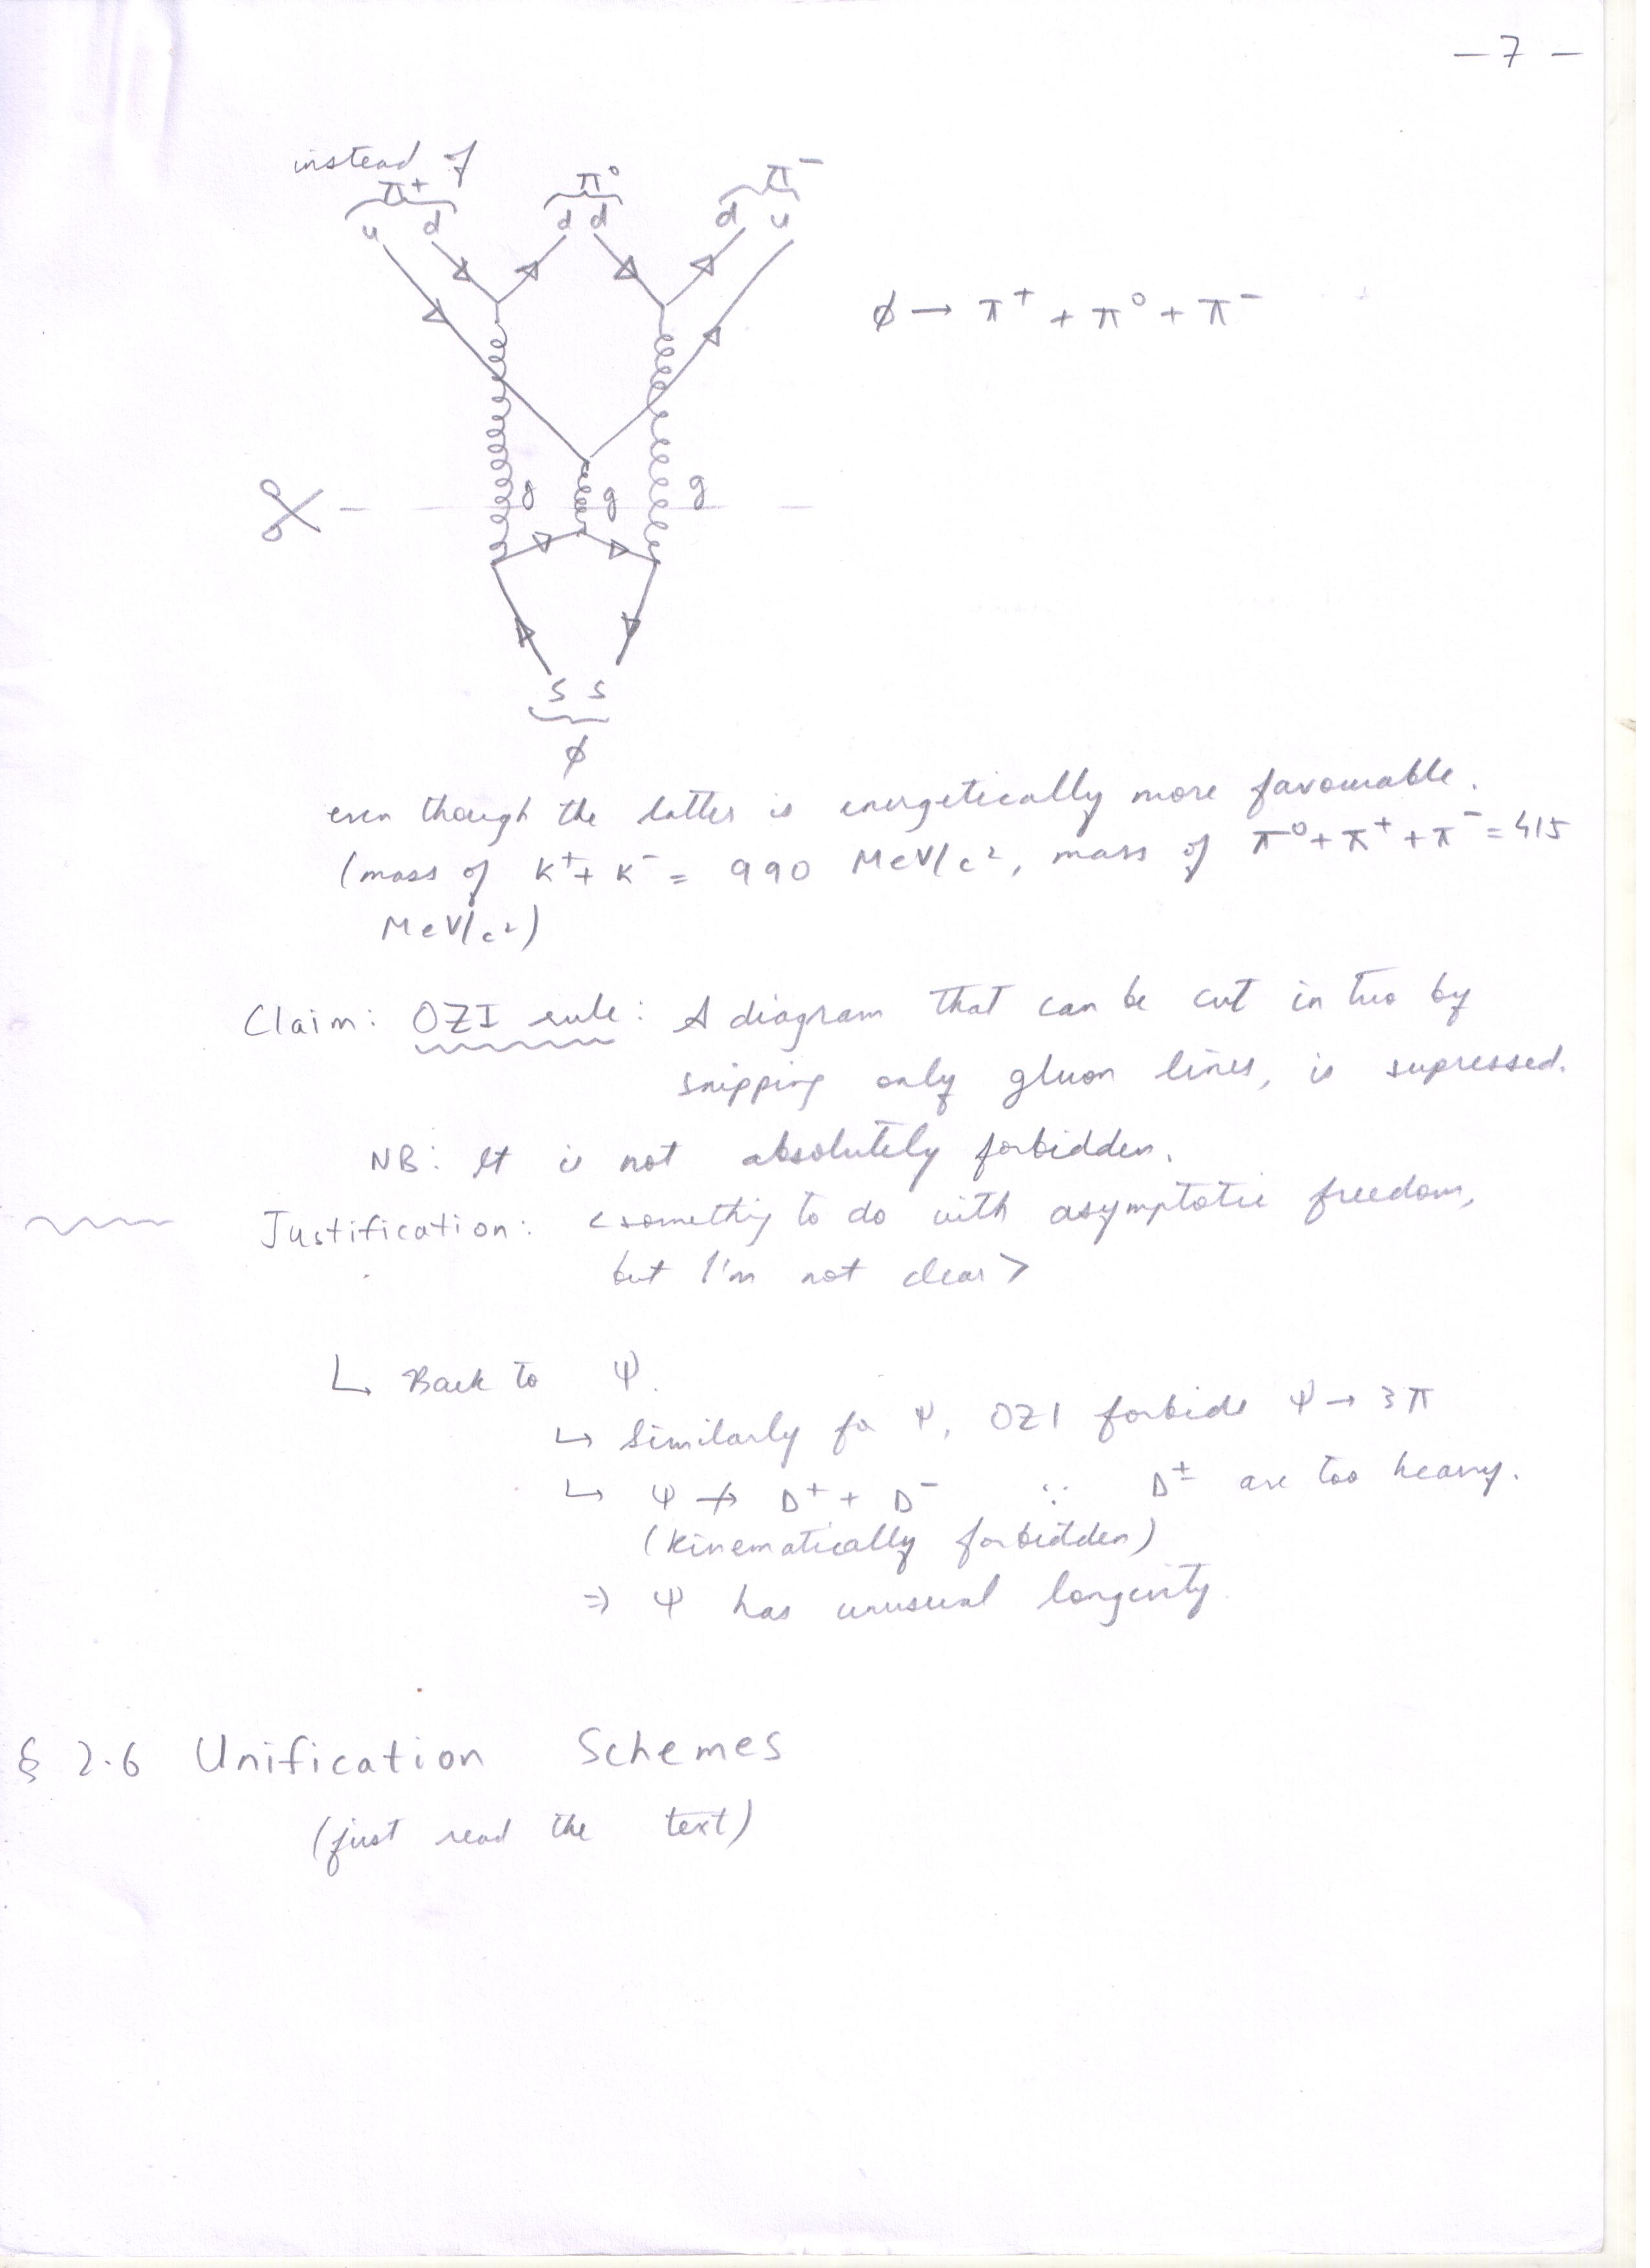 — 7 —
instead of
π⁺ π⁰ π⁻
u d d d d u
ϕ → π⁺ + π⁰ + π⁻
g g g
s s
ϕ
even though the latter is energetically more favourable.
(mass of K⁺ + K⁻ = 990 MeV/c², mass of π⁰ + π⁺ + π⁻ = 415
MeV/c²)
Claim: OZI rule: A diagram that can be cut in two by
snipping only gluon lines, is supressed.
NB: It is not absolutely forbidden.
Justification: <something to do with asymptotic freedom,
but I'm not clear>
↳ Back to ψ.
↳ Similarly for ψ, OZI forbids ψ → 3π
↳ ψ ↛ D⁺ + D⁻ ∵ D± are too heavy.
(kinematically forbidden)
⇒ ψ has unusual longevity.
§ 2.6 Unification Schemes
(just read the text)